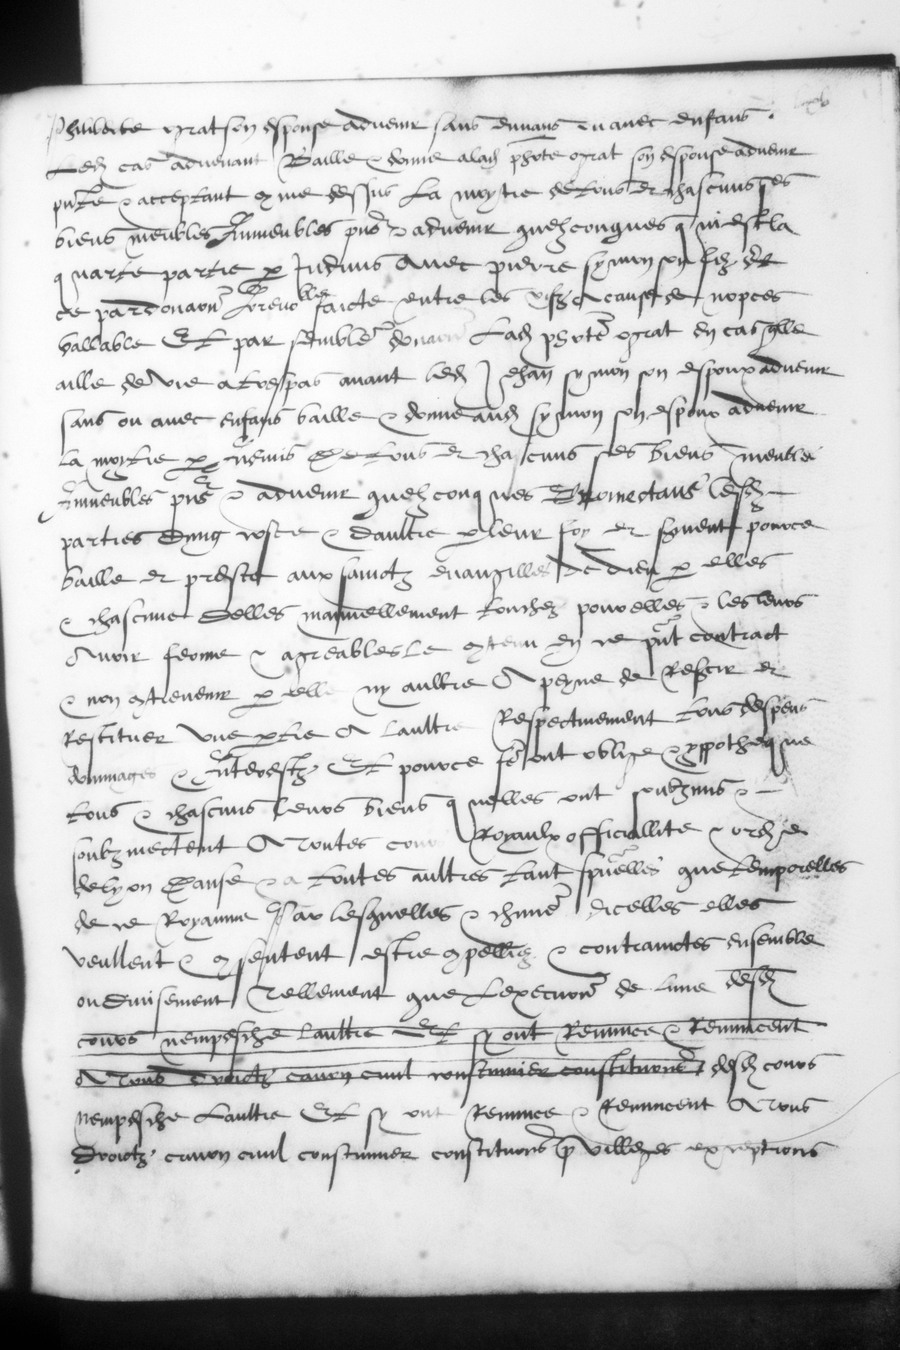 Philiberte ograt son espouse advenir sans enffans ou avec enfans .
Led cas advenant Baille & donne alad phote ograt son espouse advenir
pnte & acceptant come dessus La moytie de tous et chascuns ses
biens meubles Immeubles pns & advenir quelzconques q nd est la
quarte partie p Indivis Avec pierre symon son filz
de par donaon Irrevo faicte entre les vifz A cause de nopces
vallable Et par semble donaon Lad phote ograt En cas qlle
aille de vie a trespas avant led Jehan symon son espoux advenir
sans ou avec enfans baille & donne aud symon son espoux advenir
La moytie p Indivis de tous et chascuns ses biens meubles
Immeubles pns & advenir quelzconques Promectans lesd
parties Dung coste & daultre p leur foy et serment pource
baille et preste aux sainctz evangilles de dieu p elles
& chascune Delles manuellement touchez pour elles & les leurs
Avoir ferme & agreables le contenu En ce pnt contract
& non contrevenir p elle ny aultre A peyne de Reffaire et
Restituer Une ptie A Laultre Respectivement tous despens
dommages & Interestz Et pource se sont oblige & yppotheque
tous & chascuns leurs biens quelles ont soubzmis &
soubzmectent A toutes cours Royaulx officiallite & ord
de lyon & a toutes aultres tant spuelles que temporelles
de ce Royaume Par lesquelles & chune dicelles elles
veullent & consentent estre compelliz & contrainctes ensemble
ou divisement Tellement que Lexecution de lune desd
cours nempesche Laultre Et sy ont Renunce & Renuncent
A tous Droictz canon civil constumier constitutions desd cours
Nempesche Laultre Et sy ont Renunce & Renuncent A tous
Droictz canon civil constumier constitutions p villeges exceptions